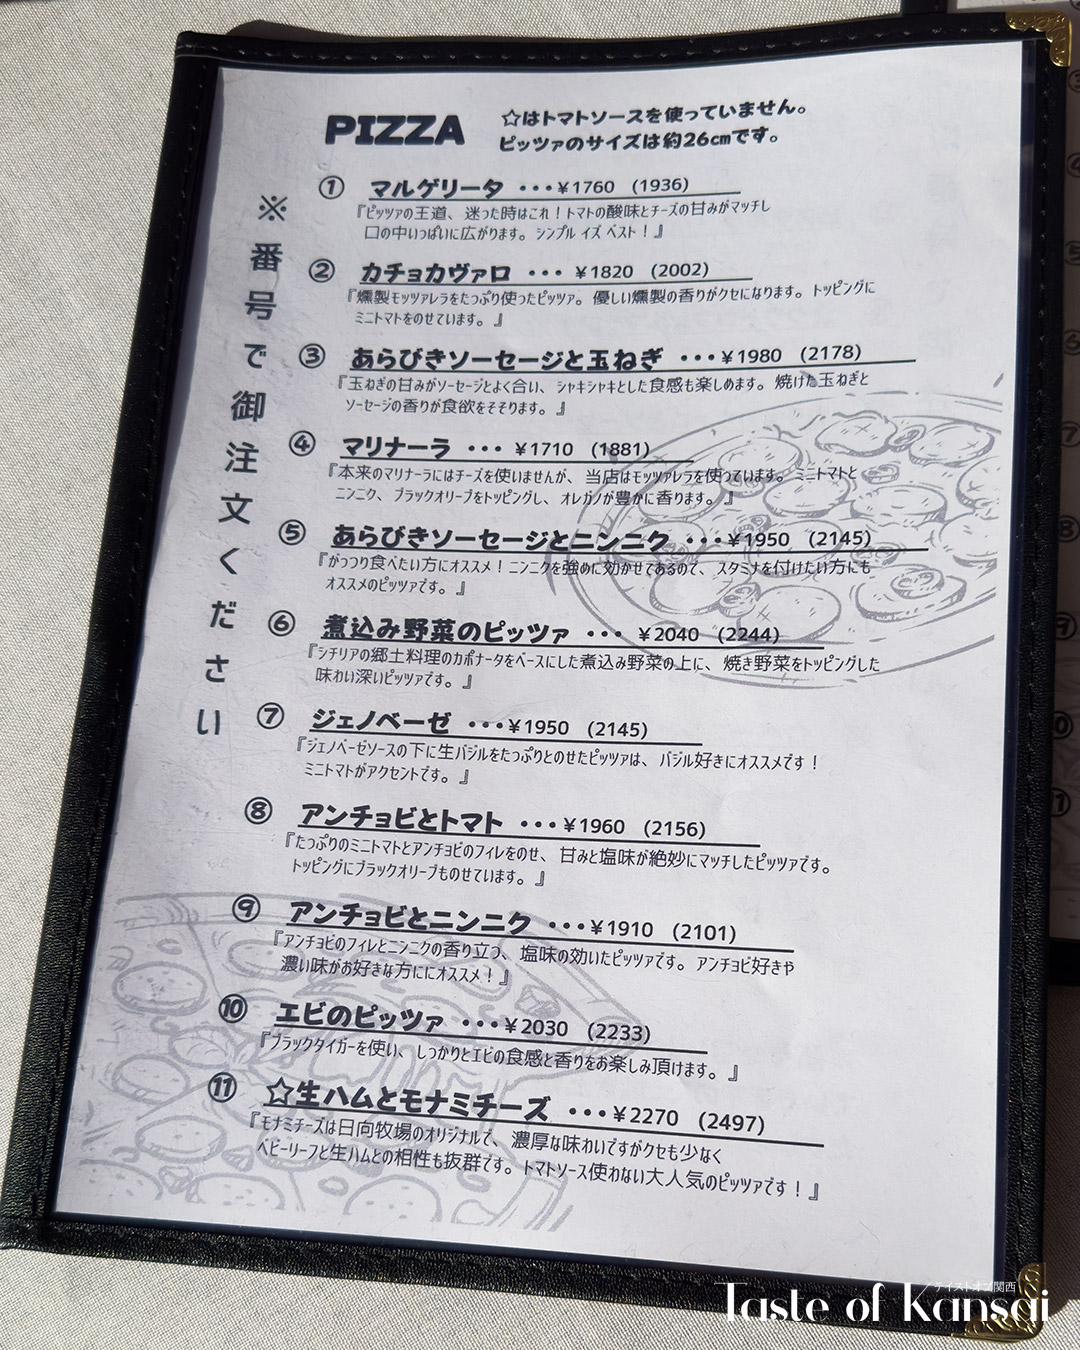 PIZZA
☆はトマトソースを使っていません。
ピッツァのサイズは約26cmです。
※番号で御注文ください
① マルゲリータ ・・・¥1760 (1936)
『ピッツァの王道、迷った時はこれ！トマトの酸味とチーズの甘みがマッチし
口の中いっぱいに広がります。シンプル イズ ベスト！』
② カチョカヴァロ ・・・ ¥1820 (2002)
『燻製モッツァレラをたっぷり使ったピッツァ。優しい燻製の香りがクセになります。トッピングに
ミニトマトをのせています。』
③ あらびきソーセージと玉ねぎ ・・・¥1980 (2178)
『玉ねぎの甘みがソーセージとよく合い、シャキシャキとした食感も楽しめます。焼けた玉ねぎと
ソーセージの香りが食欲をそそります。』
④ マリナーラ ・・・ ¥1710 (1881)
『本来のマリナーラにはチーズを使いませんが、当店はモッツァレラを使っています。ミニトマトと
ニンニク、ブラックオリーブをトッピングし、オレガノが豊かに香ります。』
⑤ あらびきソーセージとニンニク ・・・¥1950 (2145)
『がっつり食べたい方にオススメ！ニンニクを強めに効かせてあるので、スタミナを付けたい方にも
オススメのピッツァです。』
⑥ 煮込み野菜のピッツァ ・・・ ¥2040 (2244)
『シチリアの郷土料理のカポナータをベースにした煮込み野菜の上に、焼き野菜をトッピングした
味わい深いピッツァです。』
⑦ ジェノベーゼ ・・・¥1950 (2145)
『ジェノベーゼソースの下に生バジルをたっぷりとのせたピッツァは、バジル好きにオススメです！
ミニトマトがアクセントです。』
⑧ アンチョビとトマト ・・・¥1960 (2156)
『たっぷりのミニトマトとアンチョビのフィレをのせ、甘みと塩味が絶妙にマッチしたピッツァです。
トッピングにブラックオリーブものせています。』
⑨ アンチョビとニンニク ・・・¥1910 (2101)
『アンチョビのフィレとニンニクの香り立つ、塩味の効いたピッツァです。アンチョビ好きや
濃い味がお好きな方ににオススメ！』
⑩ エビのピッツァ ・・・¥2030 (2233)
『ブラックタイガーを使い、しっかりとエビの食感と香りをお楽しみ頂けます。』
⑪ ☆生ハムとモナミチーズ ・・・¥2270 (2497)
『モナミチーズは日向牧場のオリジナルで、濃厚な味わいですがクセも少なく
ベビーリーフと生ハムとの相性も抜群です。トマトソース使わない大人気のピッツァです！』
テイストオブ関西
Taste of Kansai